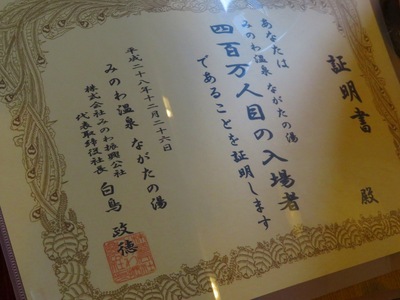 証明書
殿
あなたは
みのわ温泉 ながたの湯
四百万人目の入場者
であることを証明します
平成二十八年十二月二十六日
みのわ温泉 ながたの湯
株式会社みのわ振興公社
代表取締役社長 白鳥 政徳